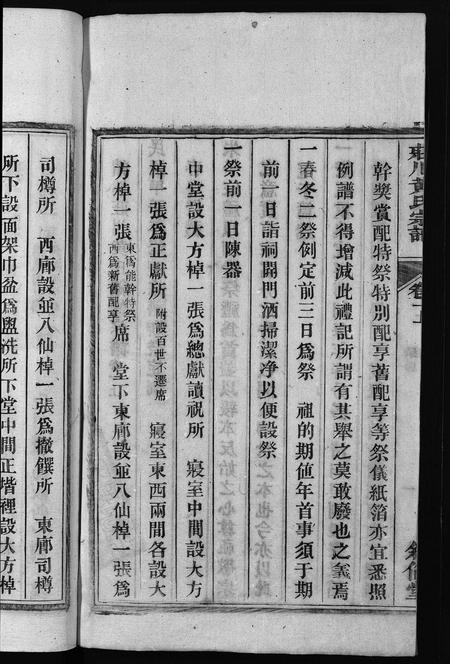 幹獎賞配特祭特別配享舊配享等祭儀紙箔亦宜悉照
例譜不得增減此禮記所謂有其舉之莫敢廢也之義焉
一春冬二祭例定前三日爲祭 祖的期値年首事須于期
前一日詣祠開門洒掃潔净以便設祭
一祭前一日陳器
中堂設大方棹一張爲總獻讀祝所 寢室中間設大方
棹一張爲正獻所 附設百世不遷席 寢室東西兩間各設大
方棹一張 東爲能幹特祭 西爲新舊配享 席 堂下東廊設並八仙棹一張爲
司樽所 西廊設並八仙棹一張爲撤饌所 東廊司樽
所下設面架巾盆爲盥洗所下堂中間正堦裡設大方棹